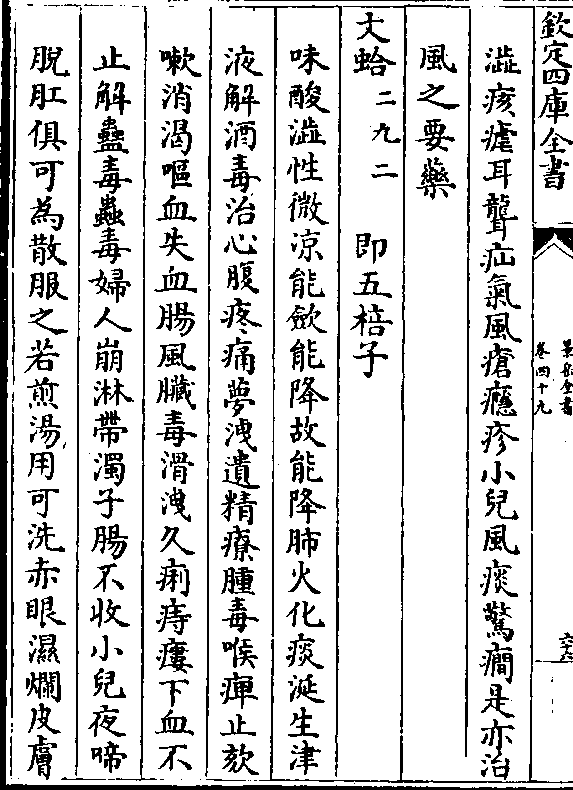 欽定四庫全書
景岳全書
卷四十九
澁痎瘧耳聾疝氣風瘡癮疹小兒風痰驚癎是亦治
風之要藥
文蛤二九二 即五棓子
味酸澁性微涼能歛能降故能降肺火化痰涎生津
液解酒毒治心腹疼痛夢洩遺精療腫毒喉痺止欬
嗽消渴嘔血失血腸風臟毒滑洩久痢痔瘻下血不
止解蠱毒蟲毒婦人崩淋帶濁子腸不收小兒夜啼
脫肛俱可為散服之若煎湯用可洗赤眼濕爛皮膚